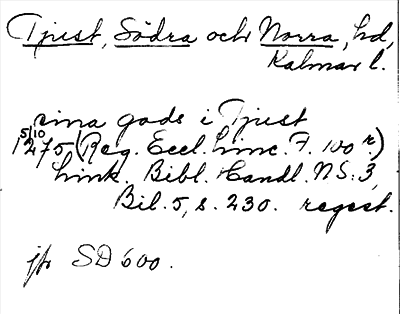 Tjust, Södra och Norra, hd,
Kalmar l.
sina gods i Tjust
5/10
1275 (Reg. Eccl. Linc. F. 100 r.)
Link. Bibl. Handl. N.S: 3,
Bil. 5, s. 230. regest.
jfr SD 600.